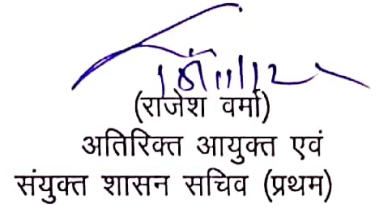 (राजेश वर्मा)
अतिरिक्त आयुक्त एवं
संयुक्त शासन सचिव (प्रथम)